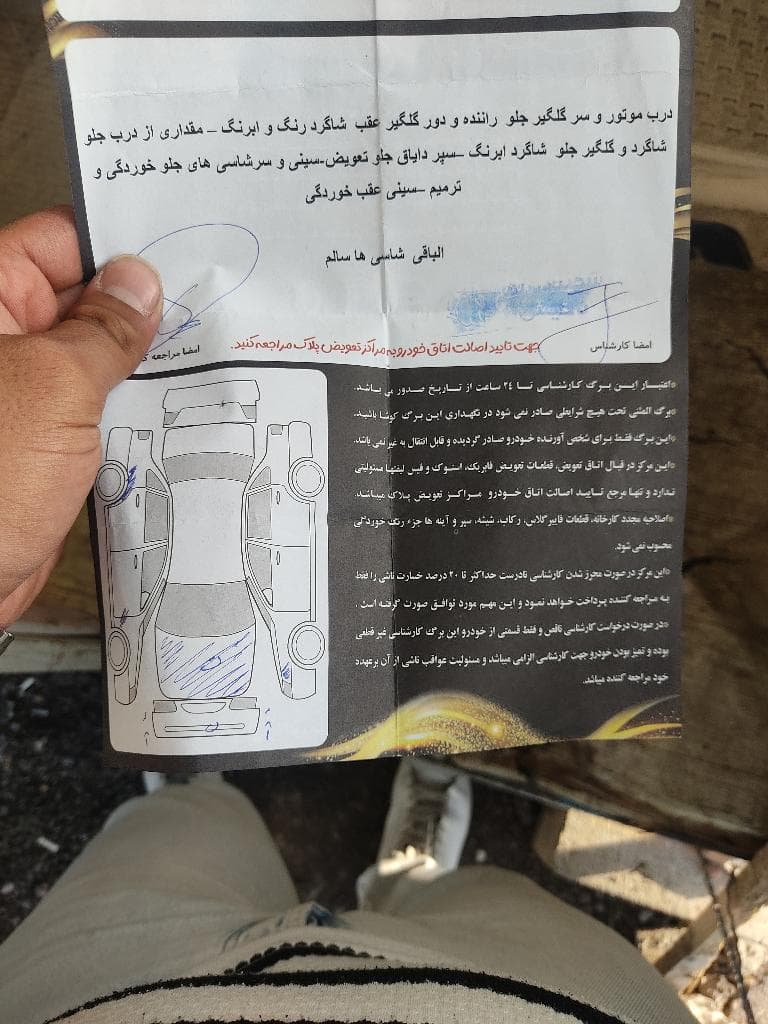 درب موتور و سر گلگیر جلو راننده و دور گلگیر عقب شاگرد رنگ و ابرنگ – مقداری از درب جلو
شاگرد و گلگیر جلو شاگرد ابرنگ –سپر دایاق جلو تعویض-سینی و سرشاسی های جلو خوردگی و
ترمیم –سینی عقب خوردگی
الباقی شاسی ها سالم
امضا کارشناس
امضا مراجعه
جهت تایید اصالت اتاق خودرو به مراکز تعویض پلاک مراجعه کنید.
اعتبار ایـن بـرگ کارشناسی تـا ۲۴ ساعت از تاریخ صدور می بـاشد.
برگ المثنی تحت هیچ شرایطی صادر نمی شود در نگهداری این برگ کوشا باشید.
این برگ فقط برای شخص آورنده خودرو صادر گردیده و قابل انتقال به غیر نمی باشد.
این مرکز در قبال اتاق تعویض، قطعات تعویض فابریک، استوک و فیس لیفتها مسئولیتی
ندارد و تنها مرجع تـایـید اصالت اتاق خـودرو مـراکـز تعویض پـلاک میباشد.
اصلاحیه مجدد کارخانه، قطعات فایبرگلاس، رکاب، شیشه، سپر و آینه ها جزء رنگ خوردگی
محسوب نمی شود.
این مرکز در صورت محرز شدن کارشناسی نادرست حداکثر تا ۲۰ درصد خسارت ناشی را فقط
به مراجعه کننده پرداخت خواهد نمـود و این مهـم مورد توافـق صورت گرفتـه است .
در صورت درخواست کارشناسی ناقص و فقط قسمتی از خودرو این برگ کارشناسی غیر قطعی
بوده و تمیز بودن خودرو جهت کارشناسی الزامی میباشد و مسئولیت عواقب ناشی از آن برعهده
خود مراجعه کننده میباشد.